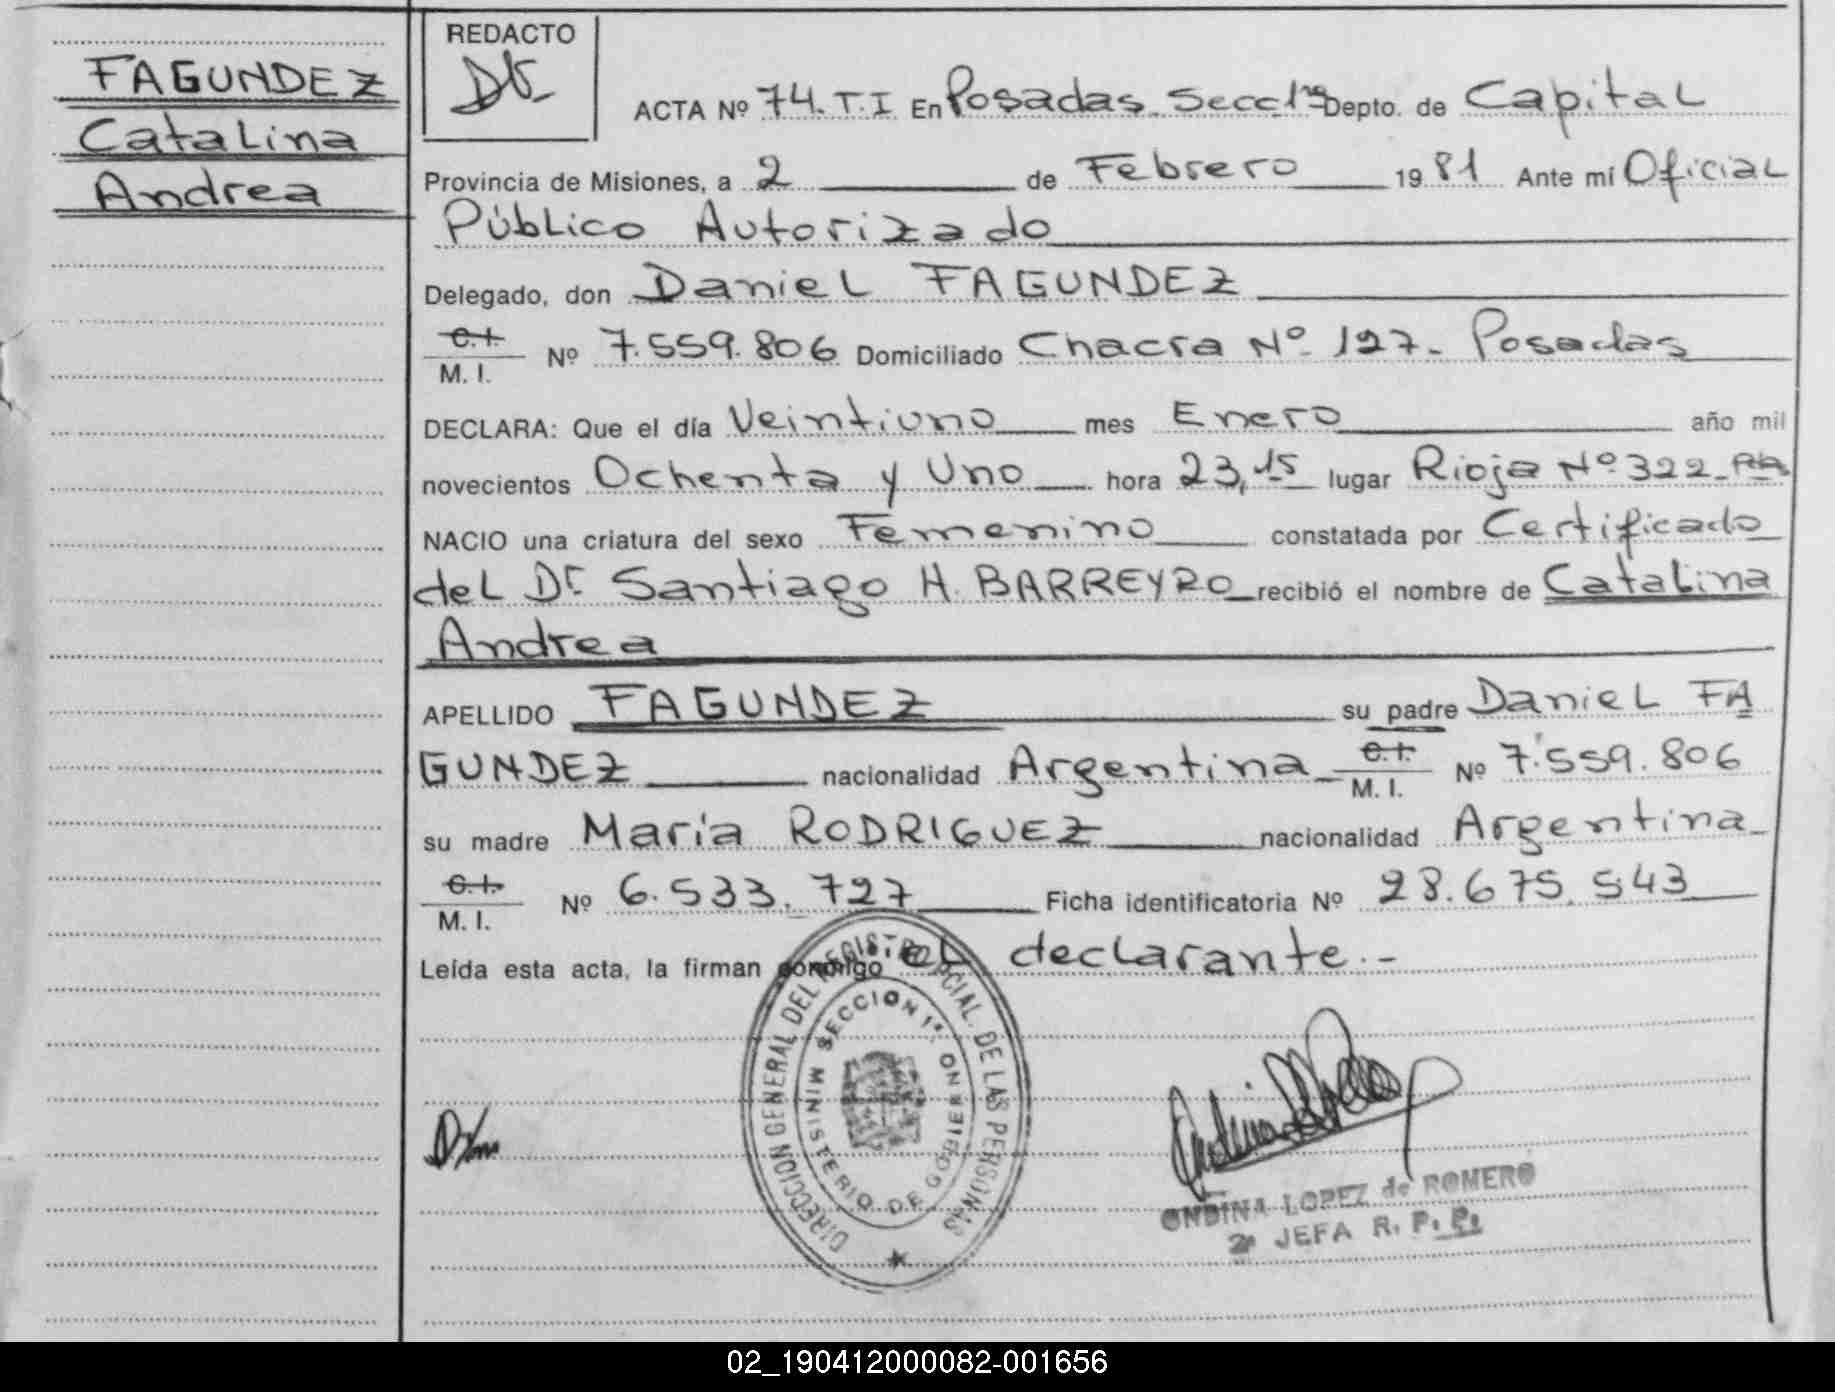 FAGUNDEZ
Catalina
Andrea
REDACTO
ACTA Nº 74. T. I En Posadas. Secc 1ra Depto. de Capital
Provincia de Misiones, a 2 de Febrero 1981 Ante mí Oficial
Público Autorizado
Delegado, don Daniel FAGUNDEZ
C.I.
M. I. Nº 7.559.806 Domiciliado Chacra Nº 127- Posadas
DECLARA: Que el día Veintiuno mes Enero año mil
novecientos Ochenta y Uno hora 23,15 lugar Rioja Nº 322-
NACIO una criatura del sexo Femenino constatada por Certificado
del Dr. Santiago H. BARREYRO recibió el nombre de Catalina
Andrea
APELLIDO FAGUNDEZ su padre Daniel FA
GUNDEZ nacionalidad Argentina C.I. M. I. Nº 7.559.806
su madre María RODRIGUEZ nacionalidad Argentina
C.I.
M. I. Nº 6.533.727 Ficha identificatoria Nº 28.675.543
Leída esta acta, la firman conmigo el declarante.-
DIRECCION GENERAL DEL REGISTRO PCIAL. DE LAS PERSONAS
SECCION 1ª
MINISTERIO DE GOBIERNO
ONDINA LOPEZ de ROMERO
2ª JEFA R. P. P.
02_190412000082-001656